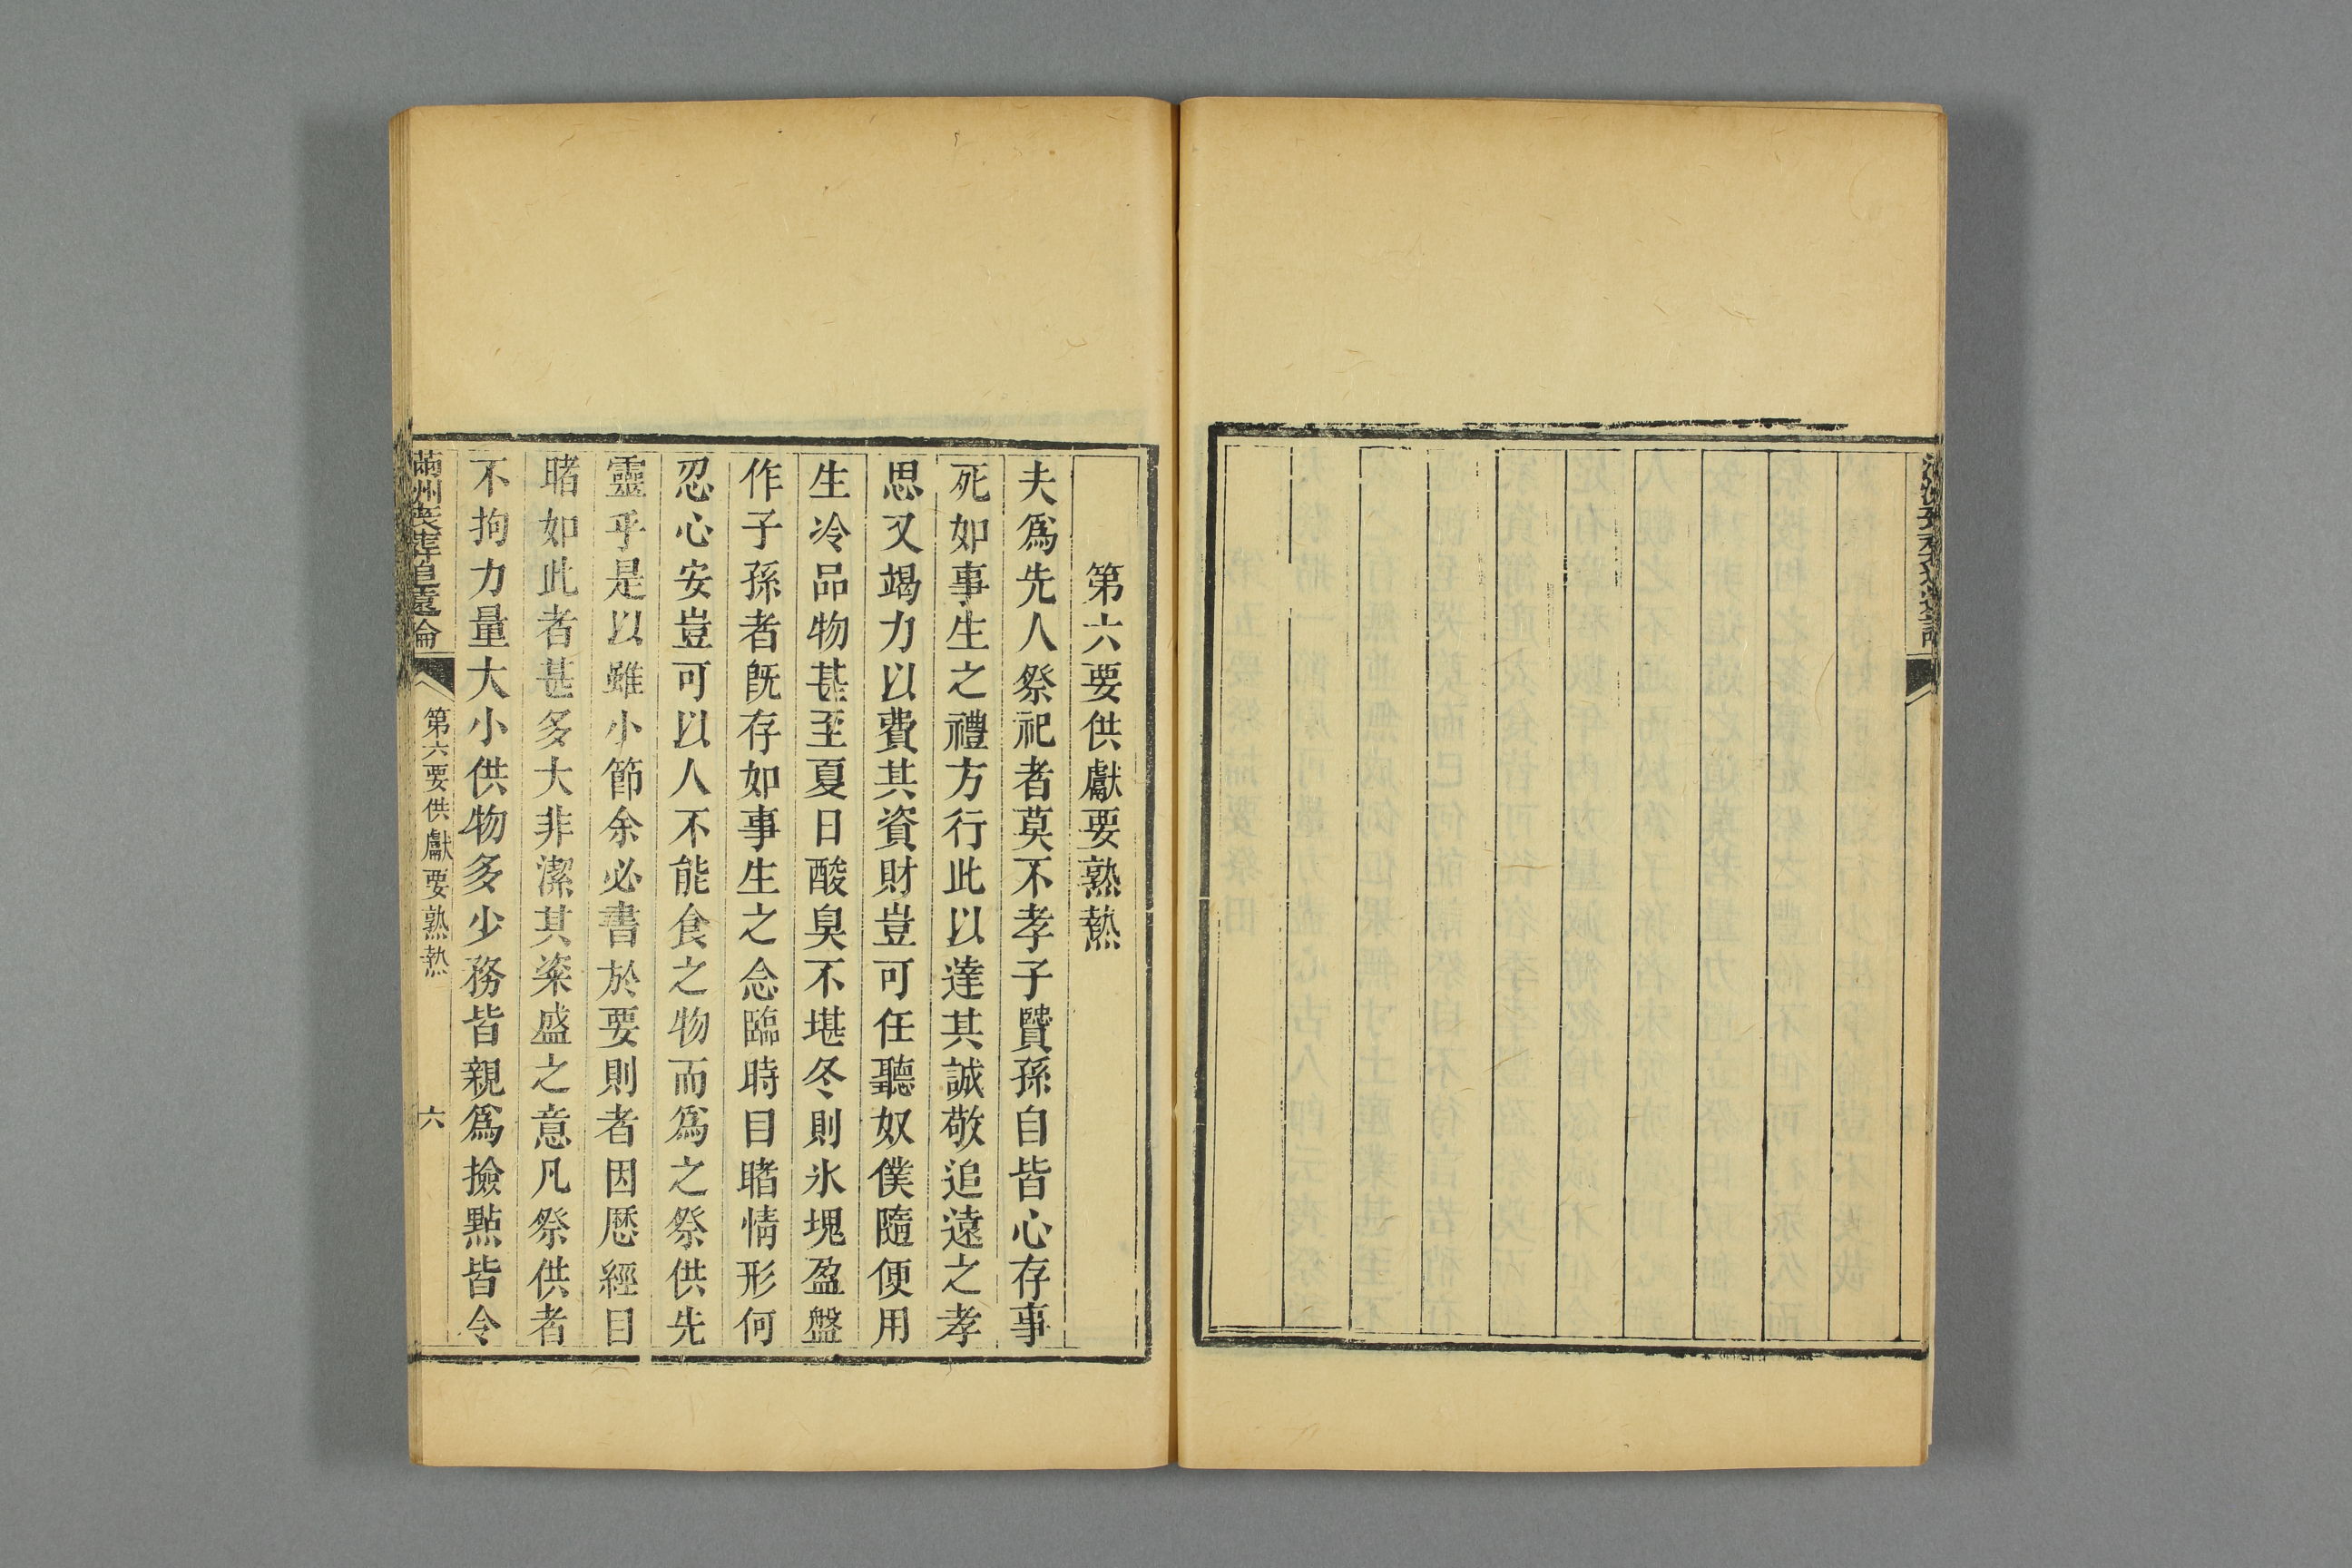 第六要供獻要熟熱
夫爲先人祭祀者莫不孝子賢孫自皆心存事
死如事生之禮方行此以達其誠敬追遠之孝
思又竭力以費其資財豈可任聽奴僕隨便用
生冷品物甚至夏日酸臭不堪冬則氷塊盈盤
作子孫者旣存如事生之念臨時目睹情形何
忍心安豈可以人不能食之物而爲之祭供先
靈乎是以雖小節余必書於要則者因歷經目
睹如此者甚多大非潔其粢盛之意凡祭供者
不拘力量大小供物多少務皆親爲撿點皆令
追遠論
第六要供獻要熟熱
六